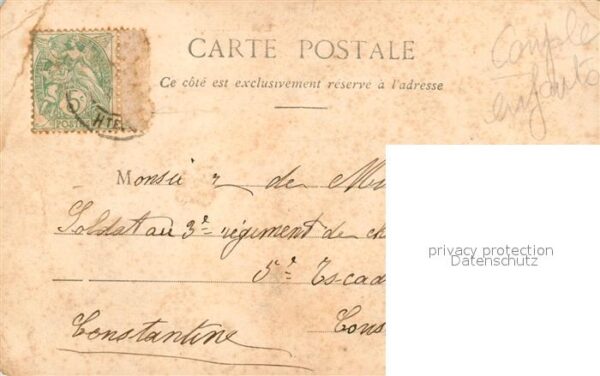 CARTE POSTALE
Ce côté est exclusivement réservé à l'adresse
Couple
enfants
5c
POSTES
HTE
Monsieur de
Soldat au 3e régiment de ch
5e Escad
Constantine Cons
privacy protection
Datenschutz